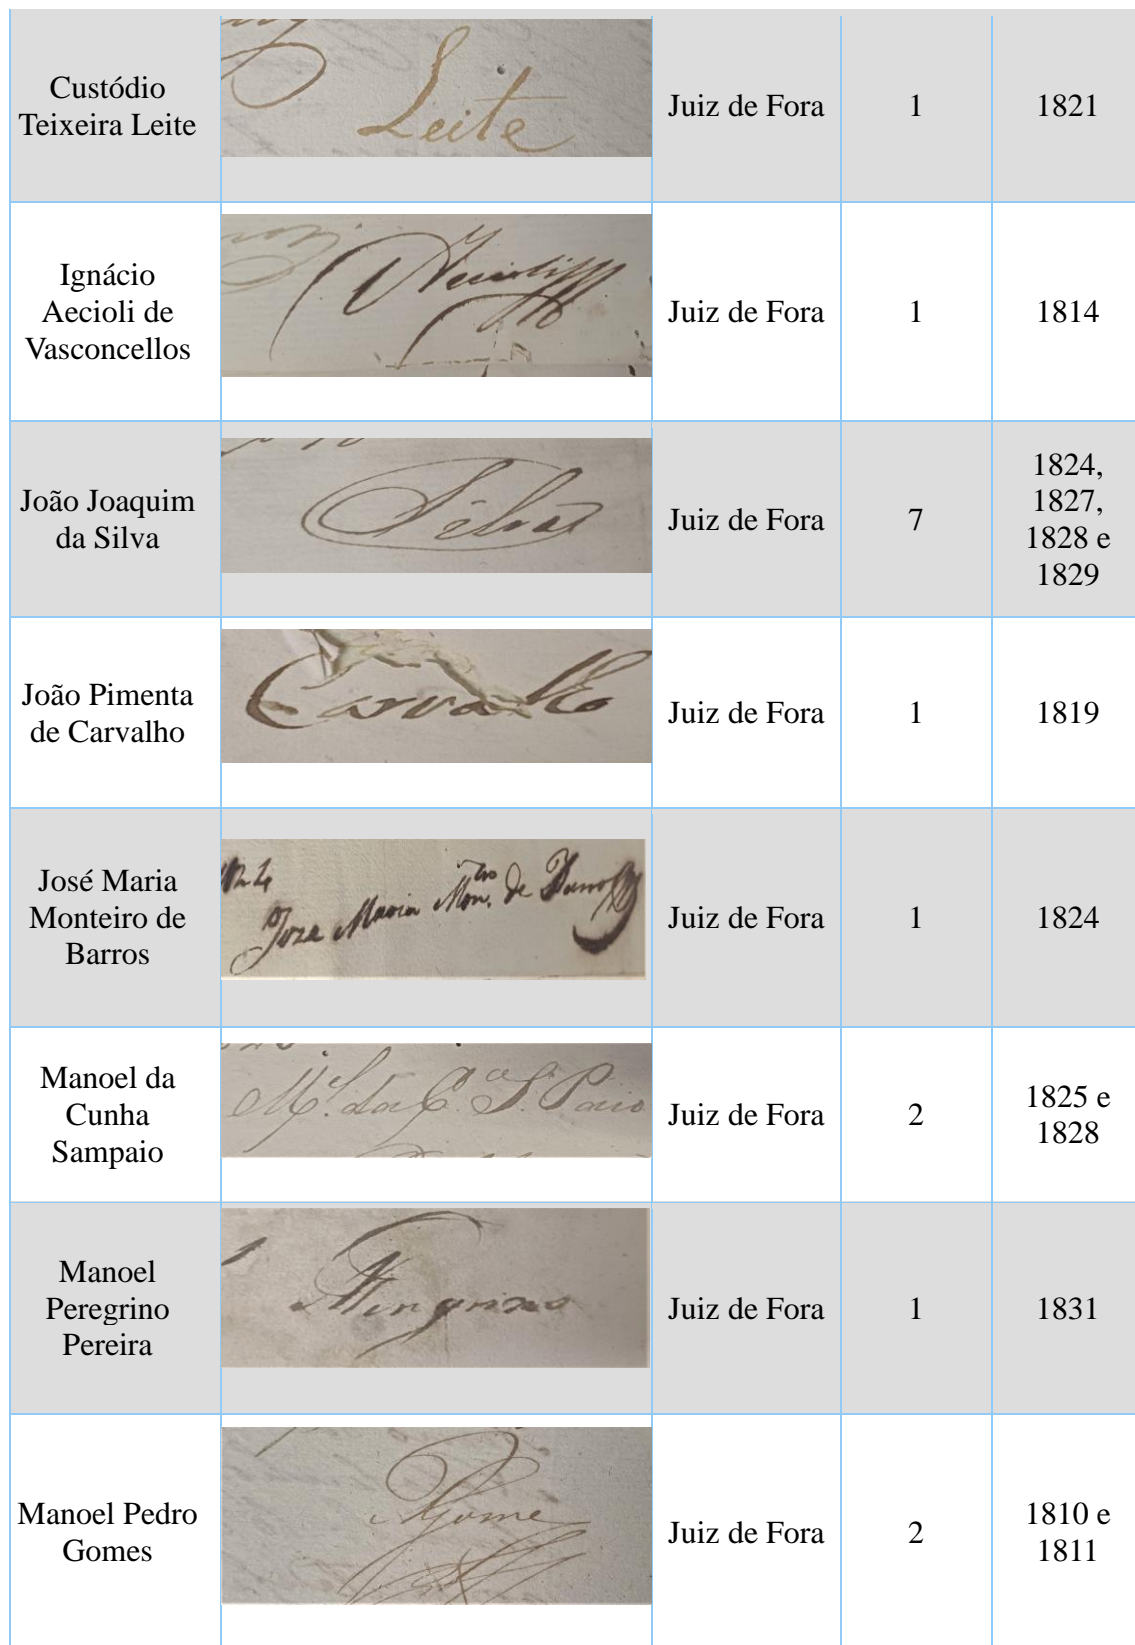 Custódio
Teixeira Leite
Leite
Juiz de Fora
1
1821
Ignácio
Aecioli de
Vasconcellos
Juiz de Fora
1
1814
João Joaquim
da Silva
Silva
Juiz de Fora
7
1824,
1827,
1828 e
1829
João Pimenta
de Carvalho
Carvalho
Juiz de Fora
1
1819
José Maria
Monteiro de
Barros
Joze Maria Mon.tro de Barros
Juiz de Fora
1
1824
Manoel da
Cunha
Sampaio
M.el da C.a S. Paio
Juiz de Fora
2
1825 e
1828
Manoel
Peregrino
Pereira
Juiz de Fora
1
1831
Manoel Pedro
Gomes
Gome
Juiz de Fora
2
1810 e
1811